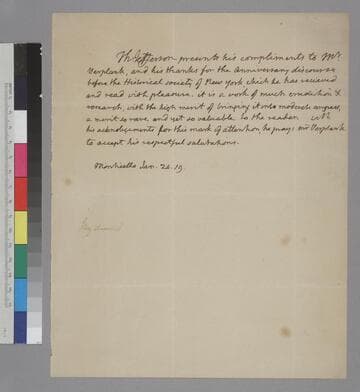 Th Jefferson presents his compliments to Mr.
Verplank, and his thanks for the Anniversary discourse
before the Historical society of New York which he has recieved
and read with pleasure. it is a work of much erudition &
research, with the high merit of bringing it into modest compass,
a merit as rare, and yet so valuable to the reader. with
his acknolegements for this mark of attention he prays mr Verplank
to accept his respectful salutations.
Monticello Jan. 24. 19.